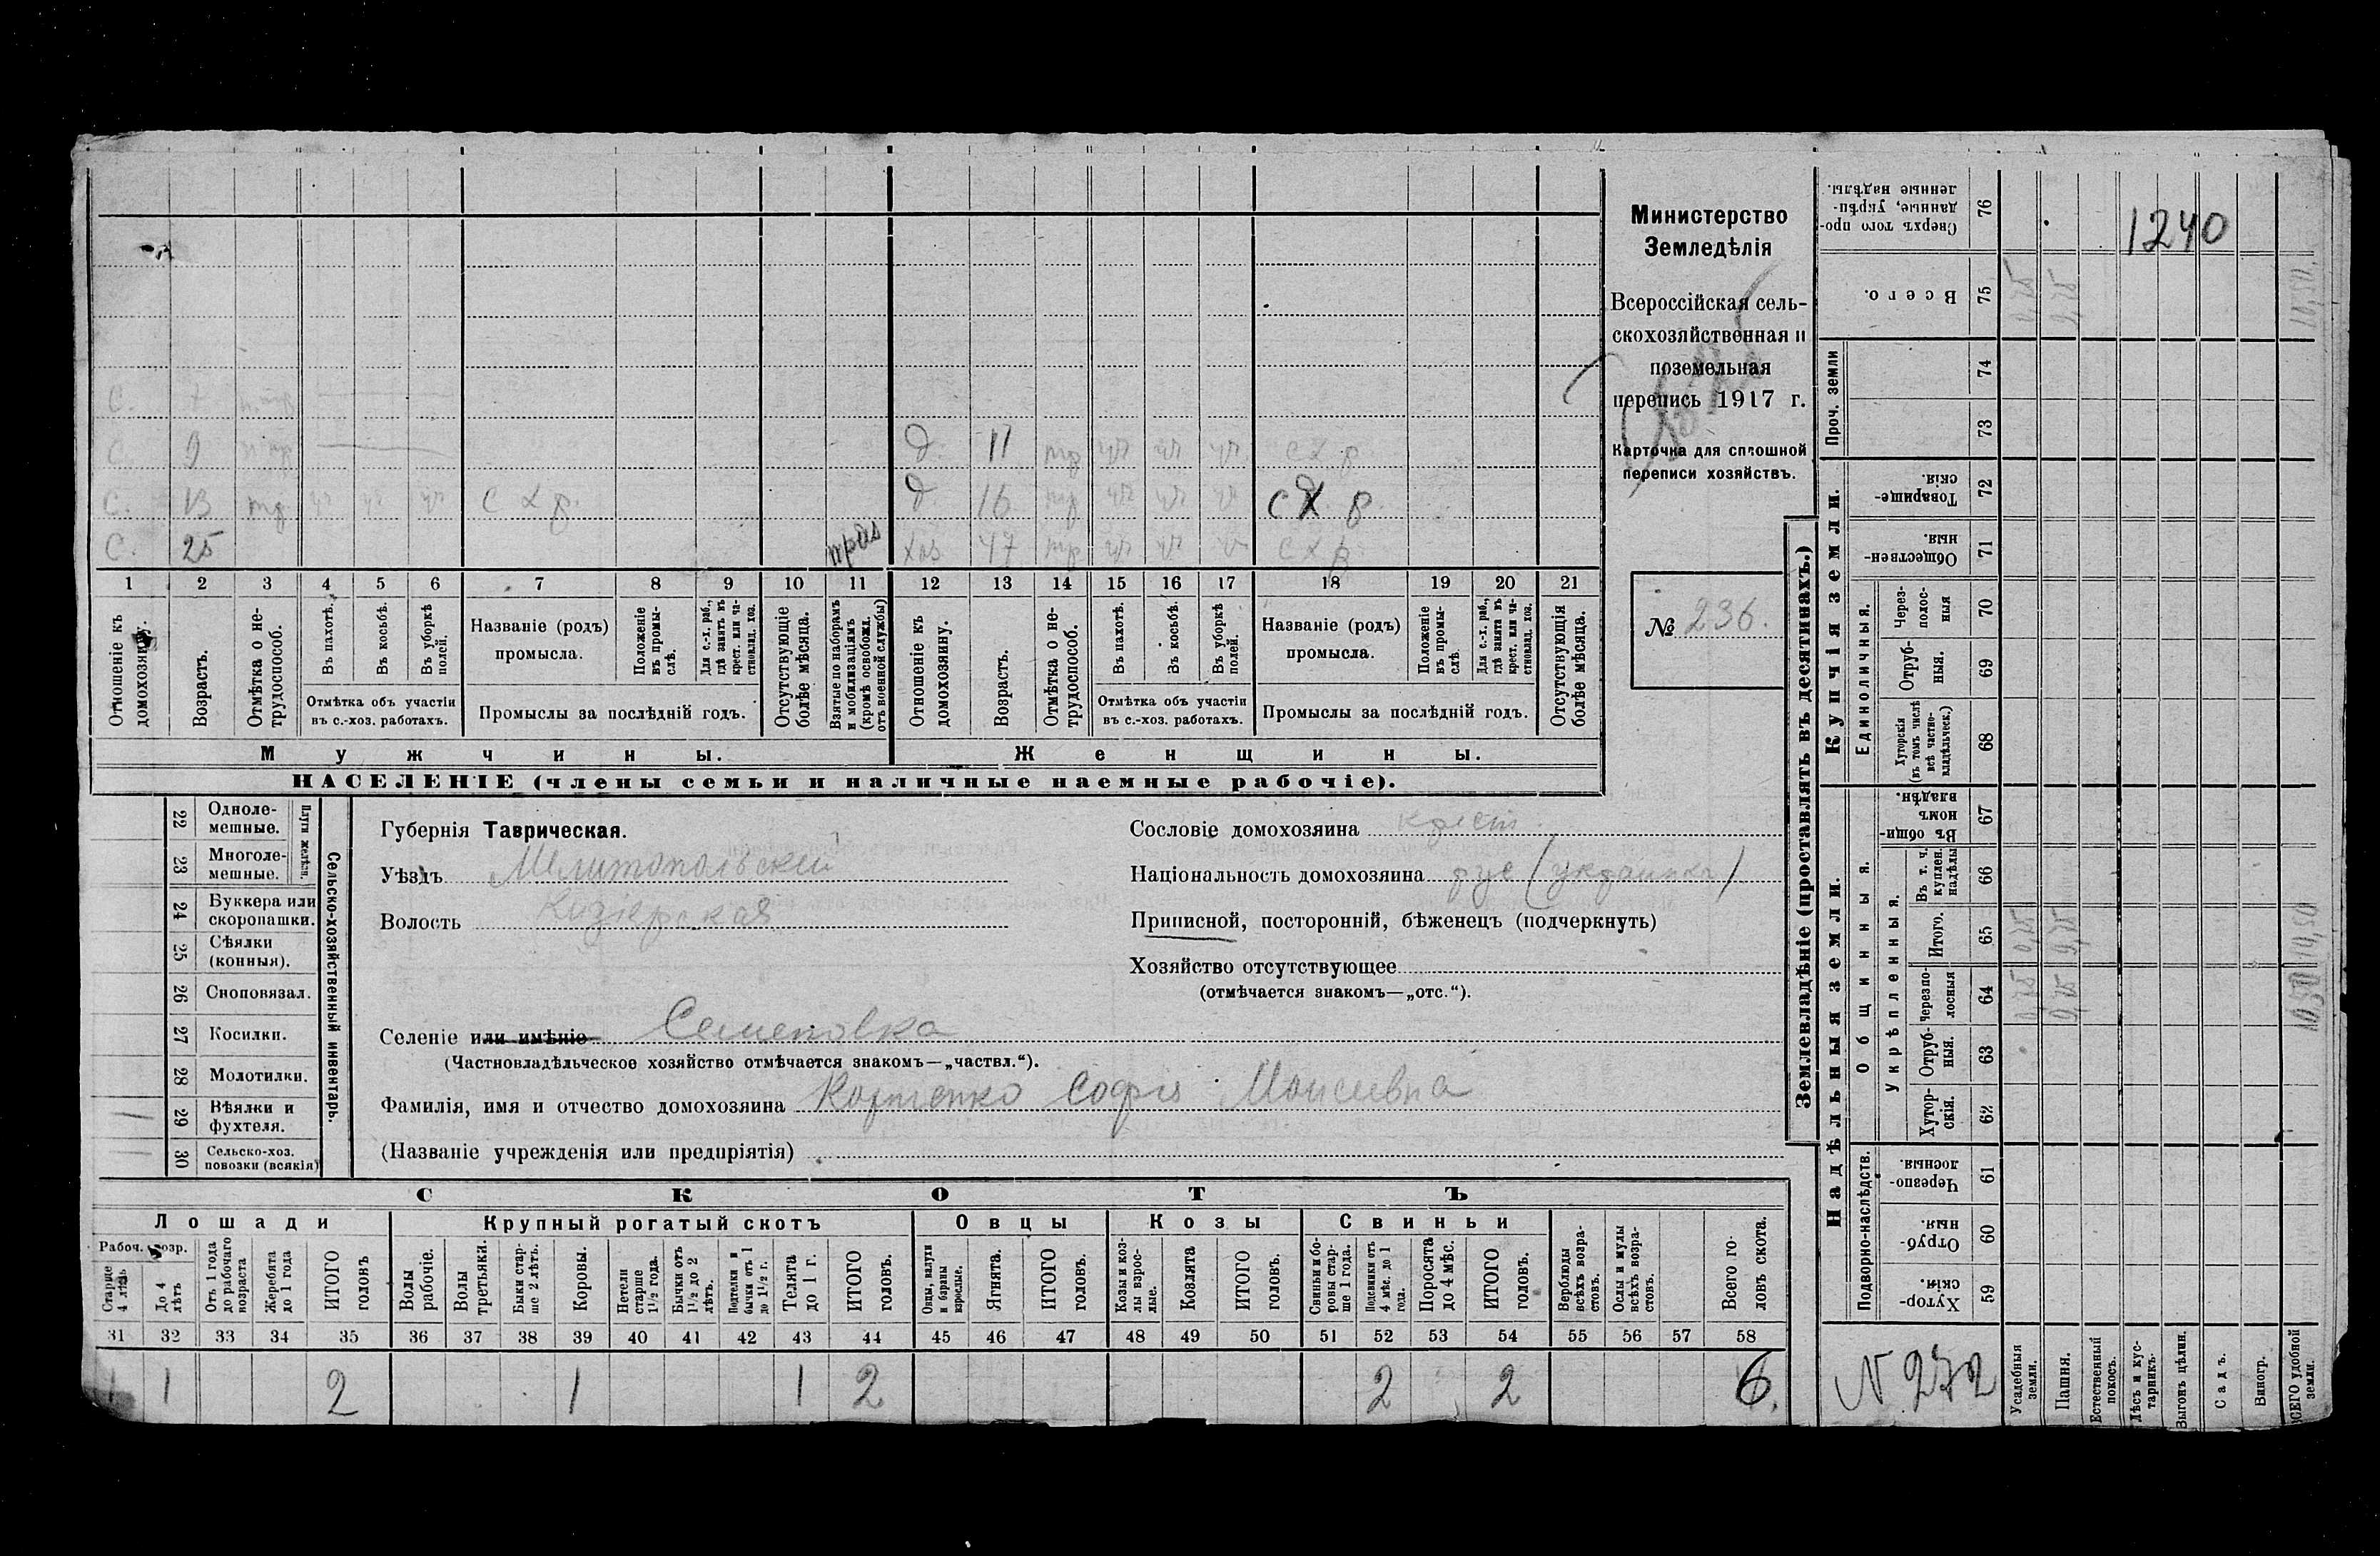 Министерство
Земледѣлія
Всероссійская сель-
скохозяйственная и
поземельная
перепись 1917 г.
Карточка для сплошной
переписи хозяйствъ.
№ 236.
1240
с. 7
с. 9
с. 13 тр с х р.
с. 25
д. 11 тр с х р
д. 16 тр с х р.
хоз 47 тр с х р
1 2 3 4 5 6 7 8 9 10 11 12 13 14 15 16 17 18 19 20 21
Отношеніе къ домохозяину.
Возрастъ.
Отмѣтка о не-трудоспособ.
Въ пахотѣ.
Въ косьбѣ.
Въ уборкѣ полей.
Отмѣтка объ участіи въ с.-хоз. работахъ.
Названіе (родъ) промысла.
Положеніе въ промы-слѣ.
Для с.-х. раб., гдѣ занятъ въ крест. или ча-стновлад. хоз.
Промыслы за послѣдній годъ.
Отсутствующіе болѣе мѣсяца.
Взятые по наборамъ и мобилизаціямъ (кромѣ освобожд. отъ военной службы)
Отношеніе къ домохозяину.
Возрастъ.
Отмѣтка о не-трудоспособ.
Въ пахотѣ.
Въ косьбѣ.
Въ уборкѣ полей.
Отмѣтка объ участіи въ с.-хоз. работахъ.
Названіе (родъ) промысла.
Положеніе въ промы-слѣ.
Для с.-х. раб., гдѣ занята въ крест. или ча-стновлад. хоз.
Промыслы за послѣдній годъ.
Отсутствующія болѣе мѣсяца.
Мужчины.
Женщины.
НАСЕЛЕНІЕ (члены семьи и наличные наемные рабочіе).
22 Одноле-мешные.
23 Многоле-мешные.
Плуги желѣзн.
24 Буккера или скоропашки.
25 Сѣялки (конныя).
26 Сноповязал.
27 Косилки.
28 Молотилки.
29 Вѣялки и фухтеля.
30 Сельско-хоз. повозки (всякія)
Сельско-хозяйственный инвентарь.
Губернія Таврическая.
Уѣздъ Мелитопольскій
Волость
Селеніе или имѣніе Семеновка
(Частновладѣльческое хозяйство отмѣчается знакомъ—„частвл.“).
Фамилія, имя и отчество домохозяина Корниенко Софія Моисеевна
(Названіе учрежденія или предпріятія)
Сословіе домохозяина крест.
Національность домохозяина рус (украинка)
Приписной, посторонній, бѣженецъ (подчеркнуть)
Хозяйство отсутствующее
(отмѣчается знакомъ—„отс.“).
СКОТЪ
Лошади
Крупный рогатый скотъ
Овцы
Козы
Свиньи
Рабоч. возр.
Старше 4 лѣтъ
До 4 лѣтъ
Отъ 1 года до рабочаго возраста
Жеребята до 1 года
ИТОГО головъ
Волы рабочіе.
Волы третьяки.
Быки стар-ше 2 лѣтъ.
Коровы.
Нетели старше 1½ года.
Бычки отъ 1½ до 2 лѣтъ.
Подтелки и бычки отъ 1 до 1½ г.
Телята до 1 г.
ИТОГО головъ.
Овцы, валухи и бараны взрослые.
Ягнята.
ИТОГО головъ.
Козы и коз-лы взрос-лые.
Козлята
ИТОГО головъ.
Свиньи и бо-ровы стар-ше 1 года.
Подсвинки отъ 4 мѣс. до 1 года.
Поросята до 4 мѣс.
ИТОГО головъ.
Верблюды всѣхъ возра-стовъ.
Ослы и мулы всѣхъ возра-стовъ.
Всего го-ловъ скота.
31 32 33 34 35 36 37 38 39 40 41 42 43 44 45 46 47 48 49 50 51 52 53 54 55 56 57 58
1 1 2 1 1 2 2 2 6.
Землевладѣніе (проставлять въ десятинахъ.)
Надѣльныя земли.
Купчія земли.
Проч. земли
Подворно-наслѣдств.
Общинныя.
Укрѣпленныя.
Единоличныя.
76 Сверхъ того про-данные, укрѣп-ленные надѣлы.
75 Всего.
74
73
72 Товарище-скія.
71 Обществен-ныя.
70 Через-полос-ныя
69 Отруб-ныя.
68 Хуторскія (въ томъ числѣ всѣ частно-владѣльческ.)
67 Въ общи-номъ владѣн.
66 Въ т. ч. куплен. надѣлы
65 Итого.
64 Черезпо-лосныя
63 Отруб-ныя.
62 Хутор-скія.
61 Черезпо-лосныя.
60 Отруб-ныя.
59 Хутор-скія.
N 272
Усадебныя земли.
Пашня.
Естественный покосъ.
Лѣсъ и кус-тарникъ.
Выгонъ цѣлин.
Садъ.
Виногр.
ВСЕГО удобной земли.